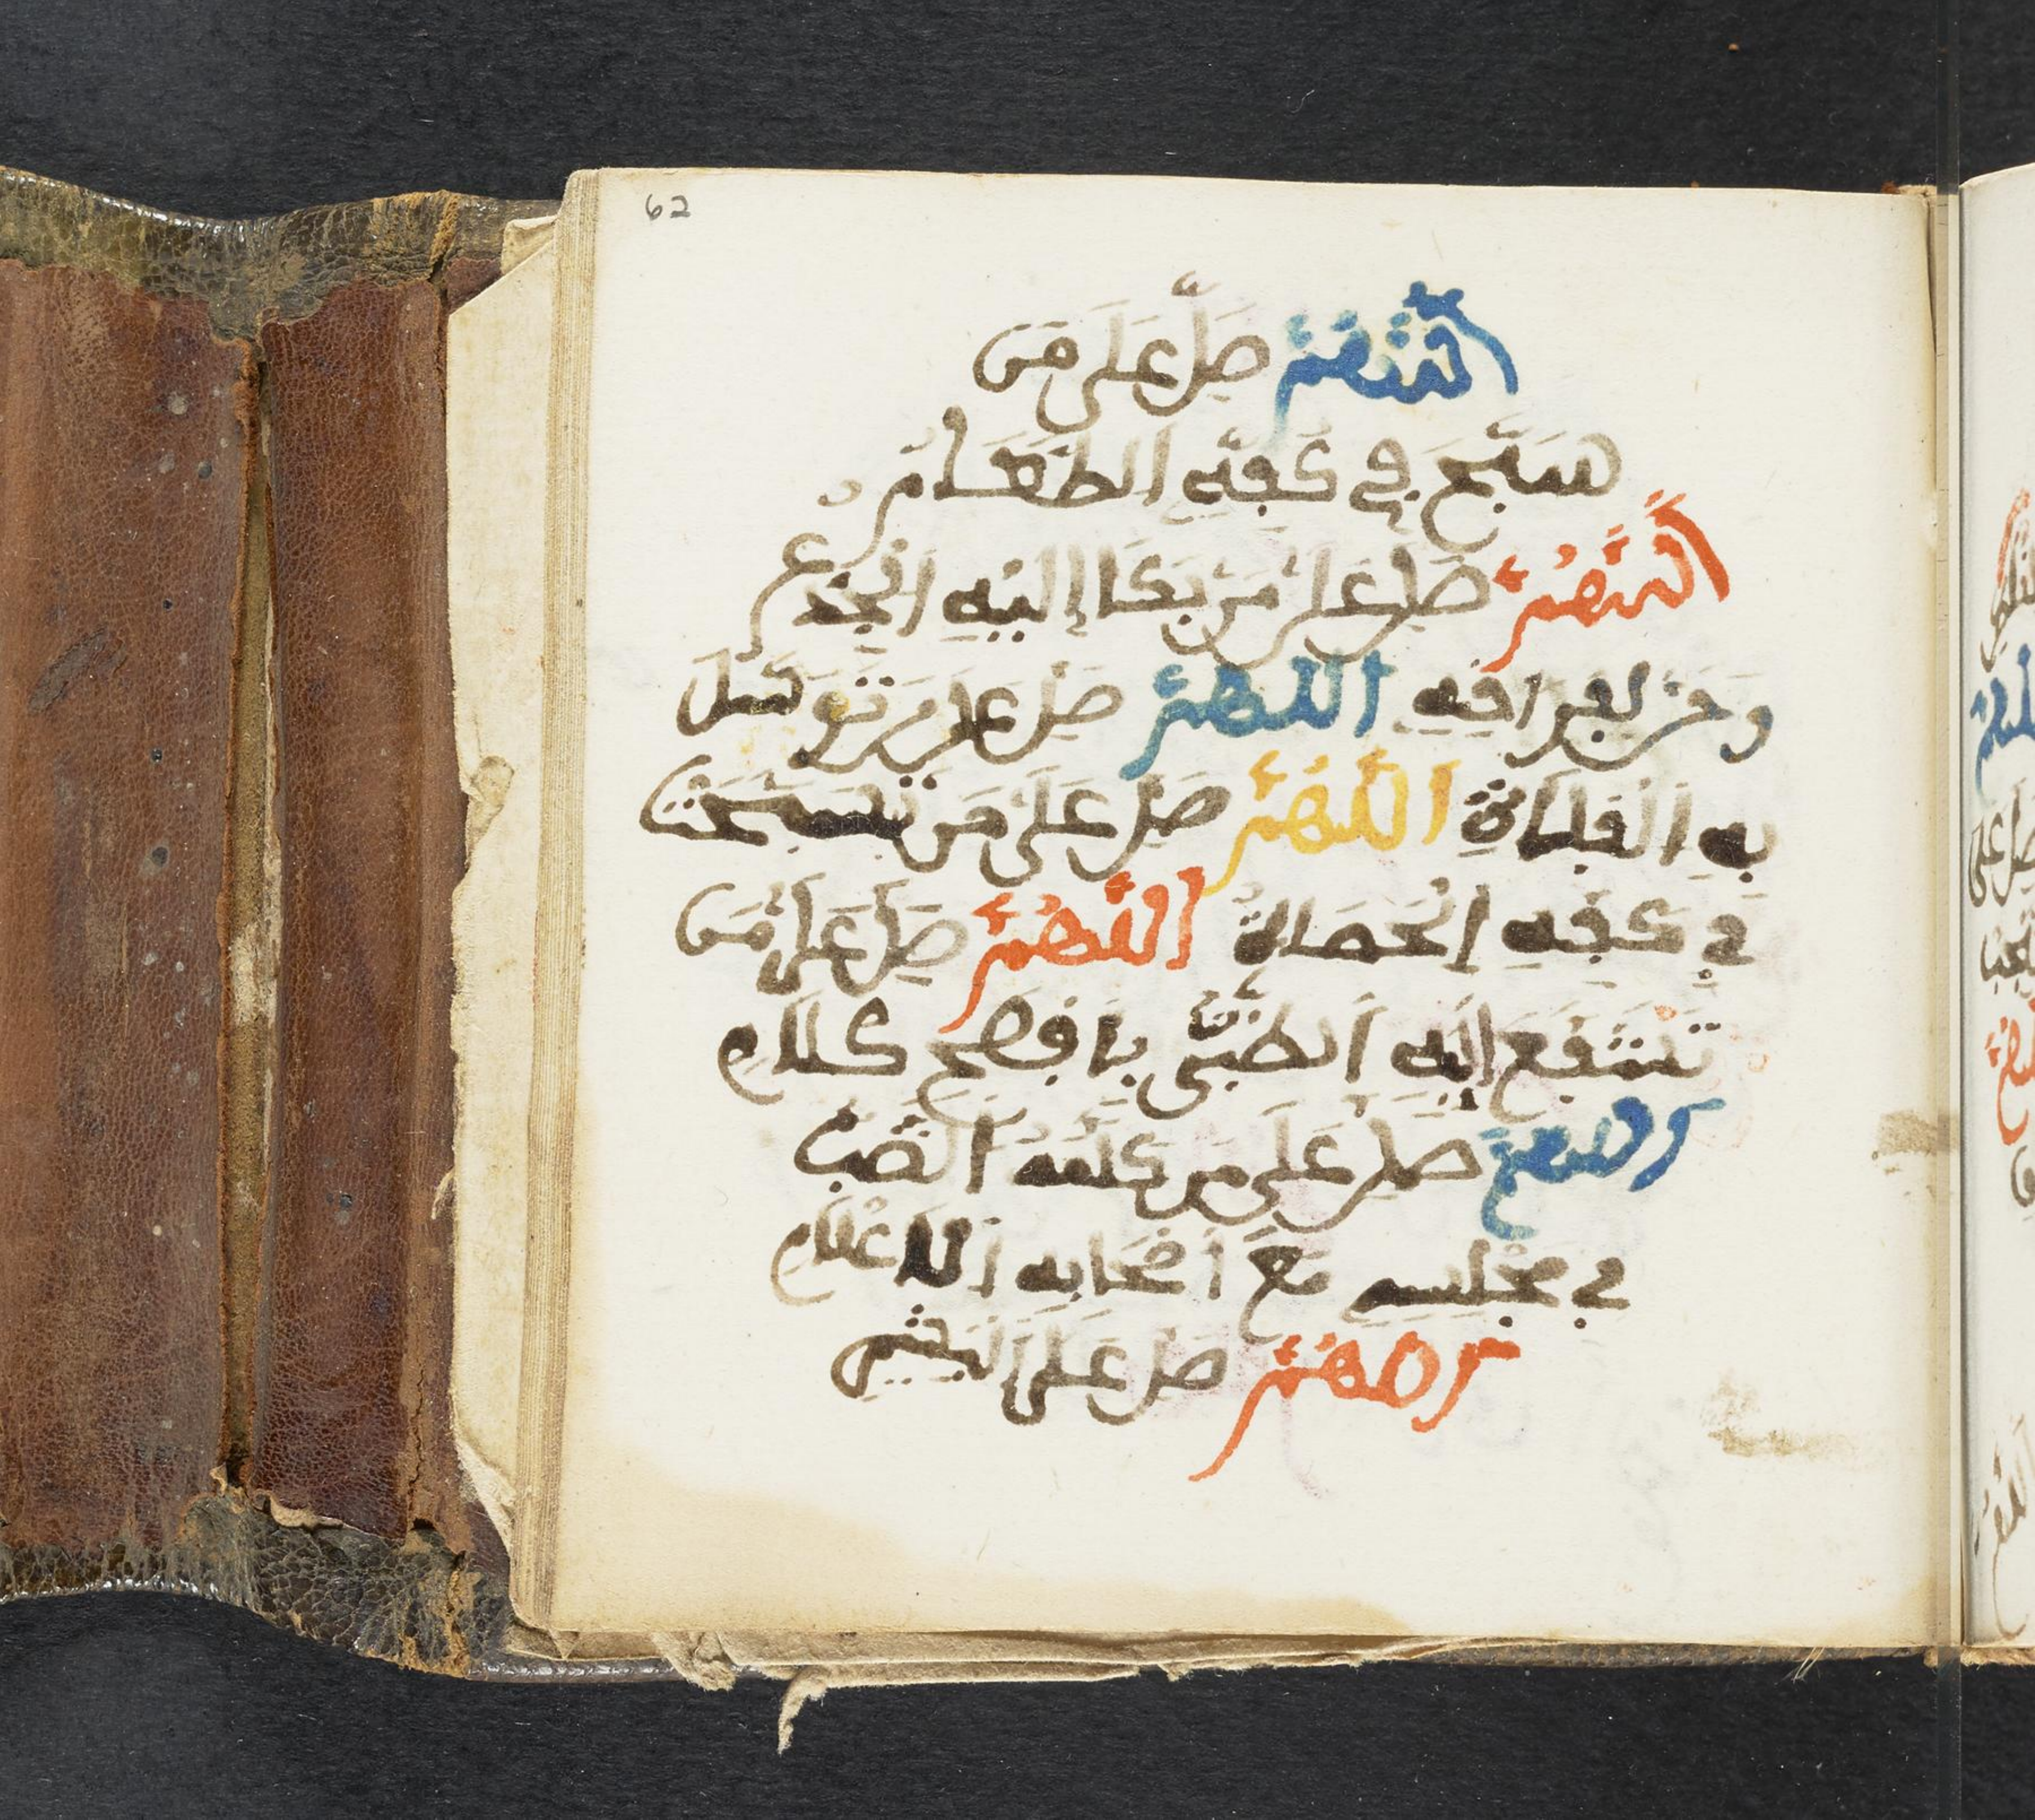 62
اللَّهُمَّ صَلِّ عَلَى مَن
سَبَّحَ فِي كَفِّهِ الطَّعَامُ
اللَّهُمَّ صَلِّ عَلَى مَن بَكَا إِلَيْهِ الْجِذْعُ
وَحَنَّ لِفِرَاقِهِ اللَّهُمَّ صَلِّ عَلَى مَن تَوَسَّلَ
بِهِ الْفَلَاةِ اللَّهُمَّ صَلِّ عَلَى مَن سَبَّحَتْ
فِي كَفِّهِ الْحَصَاةُ اللَّهُمَّ صَلِّ عَلَى مَن
تَشَفَّعَ إِلَيْهِ الظَّبْيُ بِأَفْصَحِ كَلَامٍ
اللَّهُمَّ صَلِّ عَلَى مَن كَلَّمَهُ الضَّبُّ
فِي مَجْلِسِهِ مَعَ أَصْحَابِهِ الْأَعْلَامِ
اللَّهُمَّ صَلِّ عَلَى الْبَشِيرِ